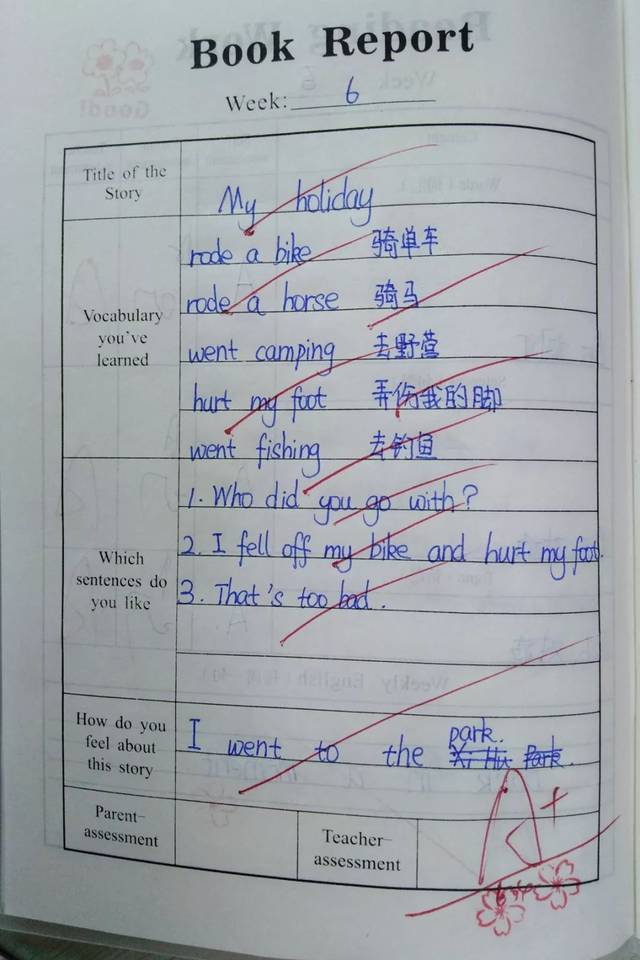 Book Report
Week: 6
Title of the
Story
My holiday
Vocabulary
you've
learned
rode a bike 骑单车
rode a horse 骑马
went camping 去野营
hurt my foot 弄伤我的脚
went fishing 去钓鱼
Which
sentences do
you like
1. Who did you go with?
2. I fell off my bike and hurt my foot.
3. That's too bad.
How do you
feel about
this story
park.
I went to the Xi Hu Park.
Parent-
assessment
Teacher-
assessment
A+